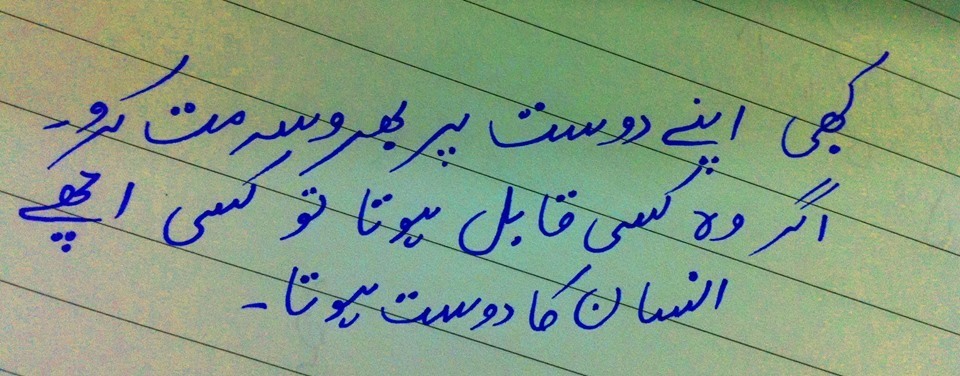 کبھی اپنے دوست پر بھروسہ مت کرو۔
اگر وہ کسی قابل ہوتا تو کسی اچھے
انسان کا دوست ہوتا۔